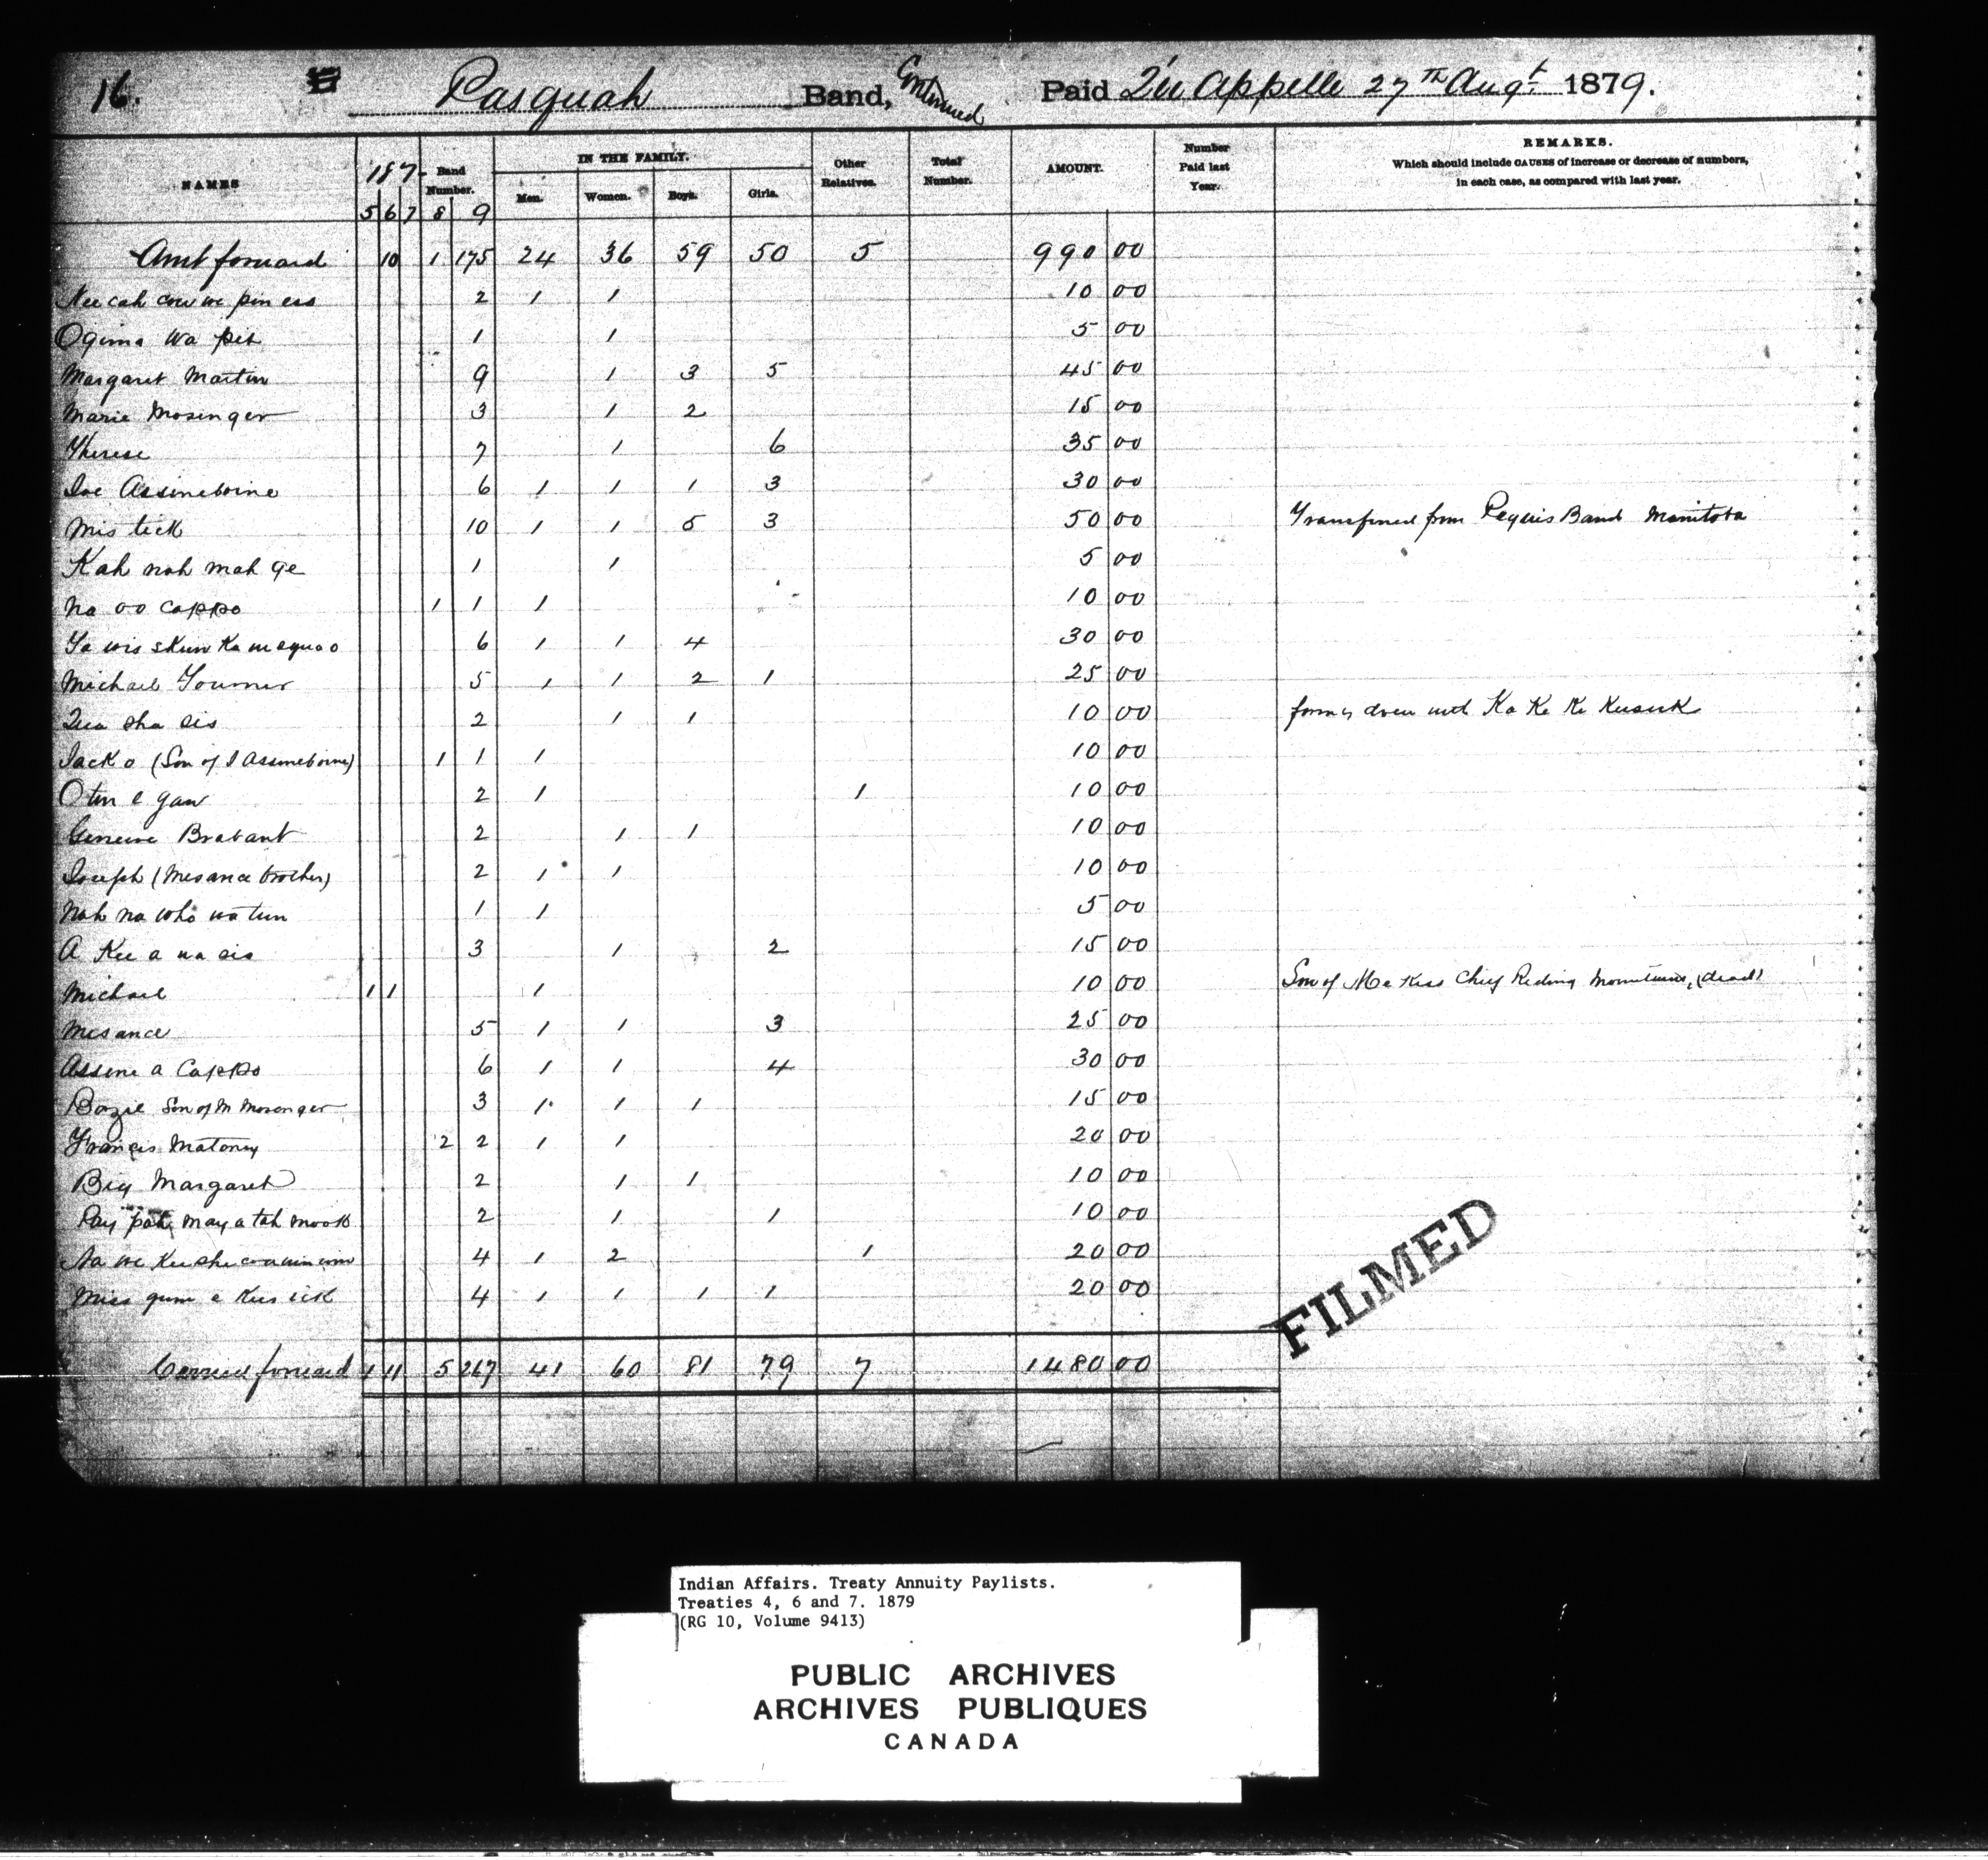 16. Pasquah Band, Continued Paid Qu Appelle 27TH Augt 1879.
NAMES 187- Band Number. IN THE FAMILY. Other Relatives. Total Number. AMOUNT. Number Paid last Year. REMARKS.
Which should include CAUSES of increase or decrease of numbers, in each case, as compared with last year.
5 6 7 8 9 Men. Women. Boys. Girls.
Amt forward 10 1 175 24 36 59 50 5 990 00
Nee cah cow we pin ess 2 1 1 10 00
Ogima wa pit 1 1 5 00
Margaret Martin 9 1 3 5 45 00
Marie Mosenger 3 1 2 15 00
Therese 7 1 6 35 00
Joe Assineboine 6 1 1 1 3 30 00
Mis tick 10 1 1 5 3 50 00 Transferred from Peguis Band Manitoba
Kah nah mah ge 1 1 5 00
Na oo cappo 1 1 1 10 00
6 1 1 4 30 00
Michael 5 1 1 2 1 25 00
Qua sha sis 2 1 1 10 00 with Ka Ke Ke Kusick
Jack o (Son of J Assineboine) 1 1 1 10 00
O tin e gaw 2 1 1 10 00
Brabant 2 1 1 10 00
Joseph (Mesance brother) 2 1 1 10 00
Nah na who na tum 1 1 5 00
A Kee a na sis 3 1 2 15 00
Michael 1 1 1 10 00 Son of Me Kiss Chief Riding Mountains, (dead)
Mesance 5 1 1 3 25 00
Assine a Cappo 6 1 1 4 30 00
Bazil Son of M Mosenger 3 1 1 1 15 00
Francis Matoney 2 2 1 1 20 00
Big Margaret 2 1 1 10 00
Pay pah may a tah mook 2 1 1 10 00
Na we Kee she 4 1 2 1 20 00
Miss qum e Kus ick 4 1 1 1 1 20 00
Carried forward 1 11 5 267 41 60 81 79 7 1480 00
FILMED
Indian Affairs. Treaty Annuity Paylists.
Treaties 4, 6 and 7. 1879
(RG 10, Volume 9413)
PUBLIC ARCHIVES
ARCHIVES PUBLIQUES
CANADA